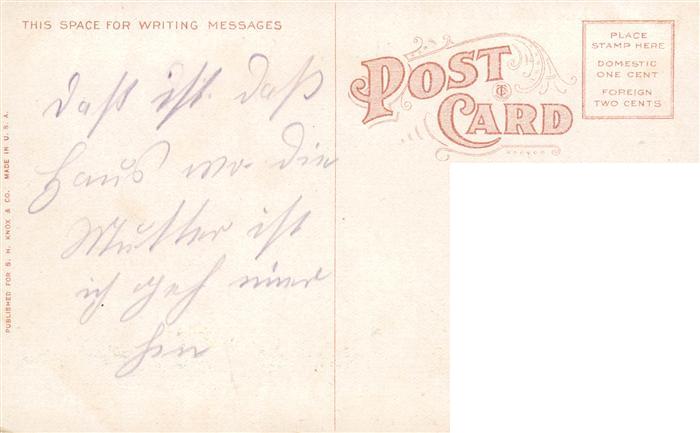 THIS SPACE FOR WRITING MESSAGES
POST CARD
PLACE
STAMP HERE
DOMESTIC
ONE CENT
FOREIGN
TWO CENTS
PUBLISHED FOR S. H. KNOX & CO. MADE IN U. S. A.
Daß ist daß
Haus wo die
Mutter ist
ich geh
hin